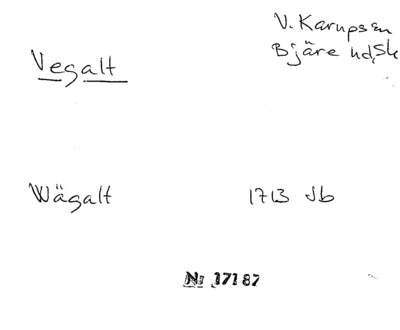 V. Karups sn
Bjäre hd, Sk
Vegalt
Wägalt 1713 Jb
No 17187